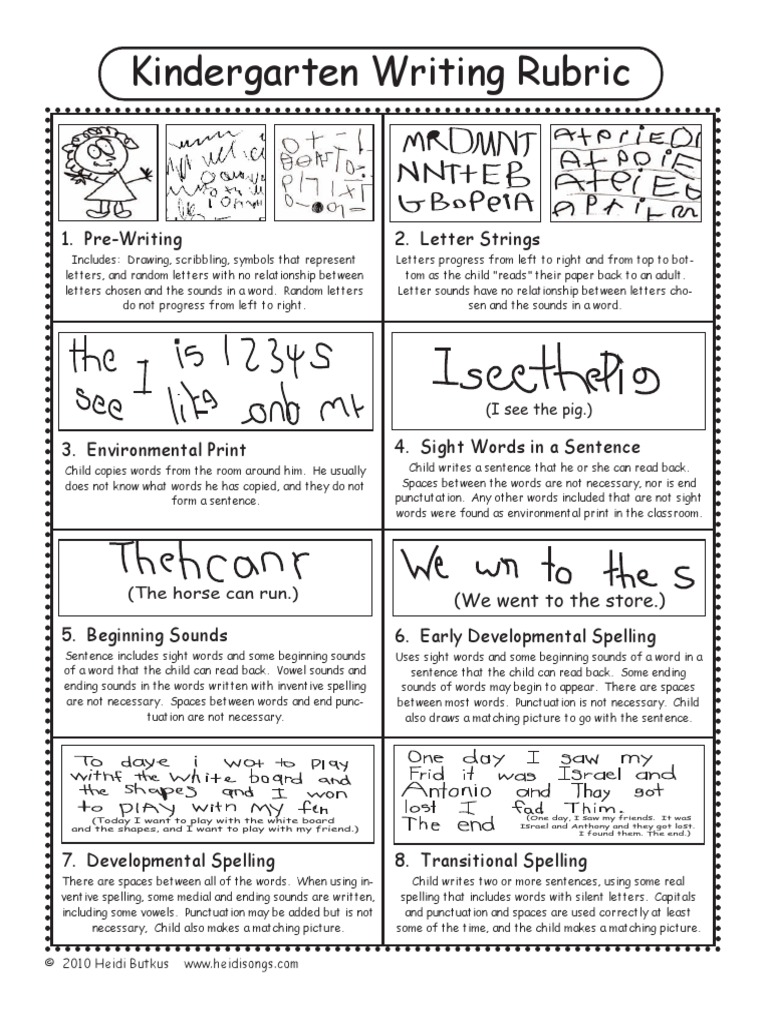 Kindergarten Writing Rubric
MRDMNT
NNTtEB
GBOPEIA
AtPriEDI
AtPOiE
AtEiEG
APriTrm
1. Pre-Writing
Includes: Drawing, scribbling, symbols that represent
letters, and random letters with no relationship between
letters chosen and the sounds in a word. Random letters
do not progress from left to right.
2. Letter Strings
Letters progress from left to right and from top to bot-
tom as the child "reads" their paper back to an adult.
Letter sounds have no relationship between letters cho-
sen and the sounds in a word.
the I is 12345
see like and mt
3. Environmental Print
Child copies words from the room around him. He usually
does not know what words he has copied, and they do not
form a sentence.
IseethePig
(I see the pig.)
4. Sight Words in a Sentence
Child writes a sentence that he or she can read back.
Spaces between the words are not necessary, nor is end
punctutation. Any other words included that are not sight
words were found as environmental print in the classroom.
Thehcanr
(The horse can run.)
5. Beginning Sounds
Sentence includes sight words and some beginning sounds
of a word that the child can read back. Vowel sounds and
ending sounds in the words written with inventive spelling
are not necessary. Spaces between words and end punc-
tuation are not necessary.
We wn to the s
(We went to the store.)
6. Early Developmental Spelling
Uses sight words and some beginning sounds of a word in a
sentence that the child can read back. Some ending
sounds of words may begin to appear. There are spaces
between most words. Punctuation is not necessary. Child
also draws a matching picture to go with the sentence.
To daye i wot to PlAy
withf the white board and
the shapes and I won
to PlAY with MY fen
(Today I want to play with the white board
and the shapes, and I want to play with my friend.)
7. Developmental Spelling
There are spaces between all of the words. When using in-
ventive spelling, some medial and ending sounds are written,
including some vowels. Punctuation may be added but is not
necessary, Child also makes a matching picture.
One day I saw my
Frid it was Israel and
Antonio and Thay got
lost I fad Thim.
The end
(One day, I saw my friends. It was
Israel and Anthony and they got lost.
I found them. The end.)
8. Transitional Spelling
Child writes two or more sentences, using some real
spelling that includes words with silent letters. Capitals
and punctuation and spaces are used correctly at least
some of the time, and the child makes a matching picture.
© 2010 Heidi Butkus www.heidisongs.com